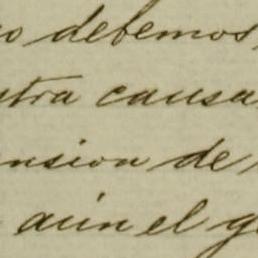 o debemos,
stra causa
nsion de
aún el g